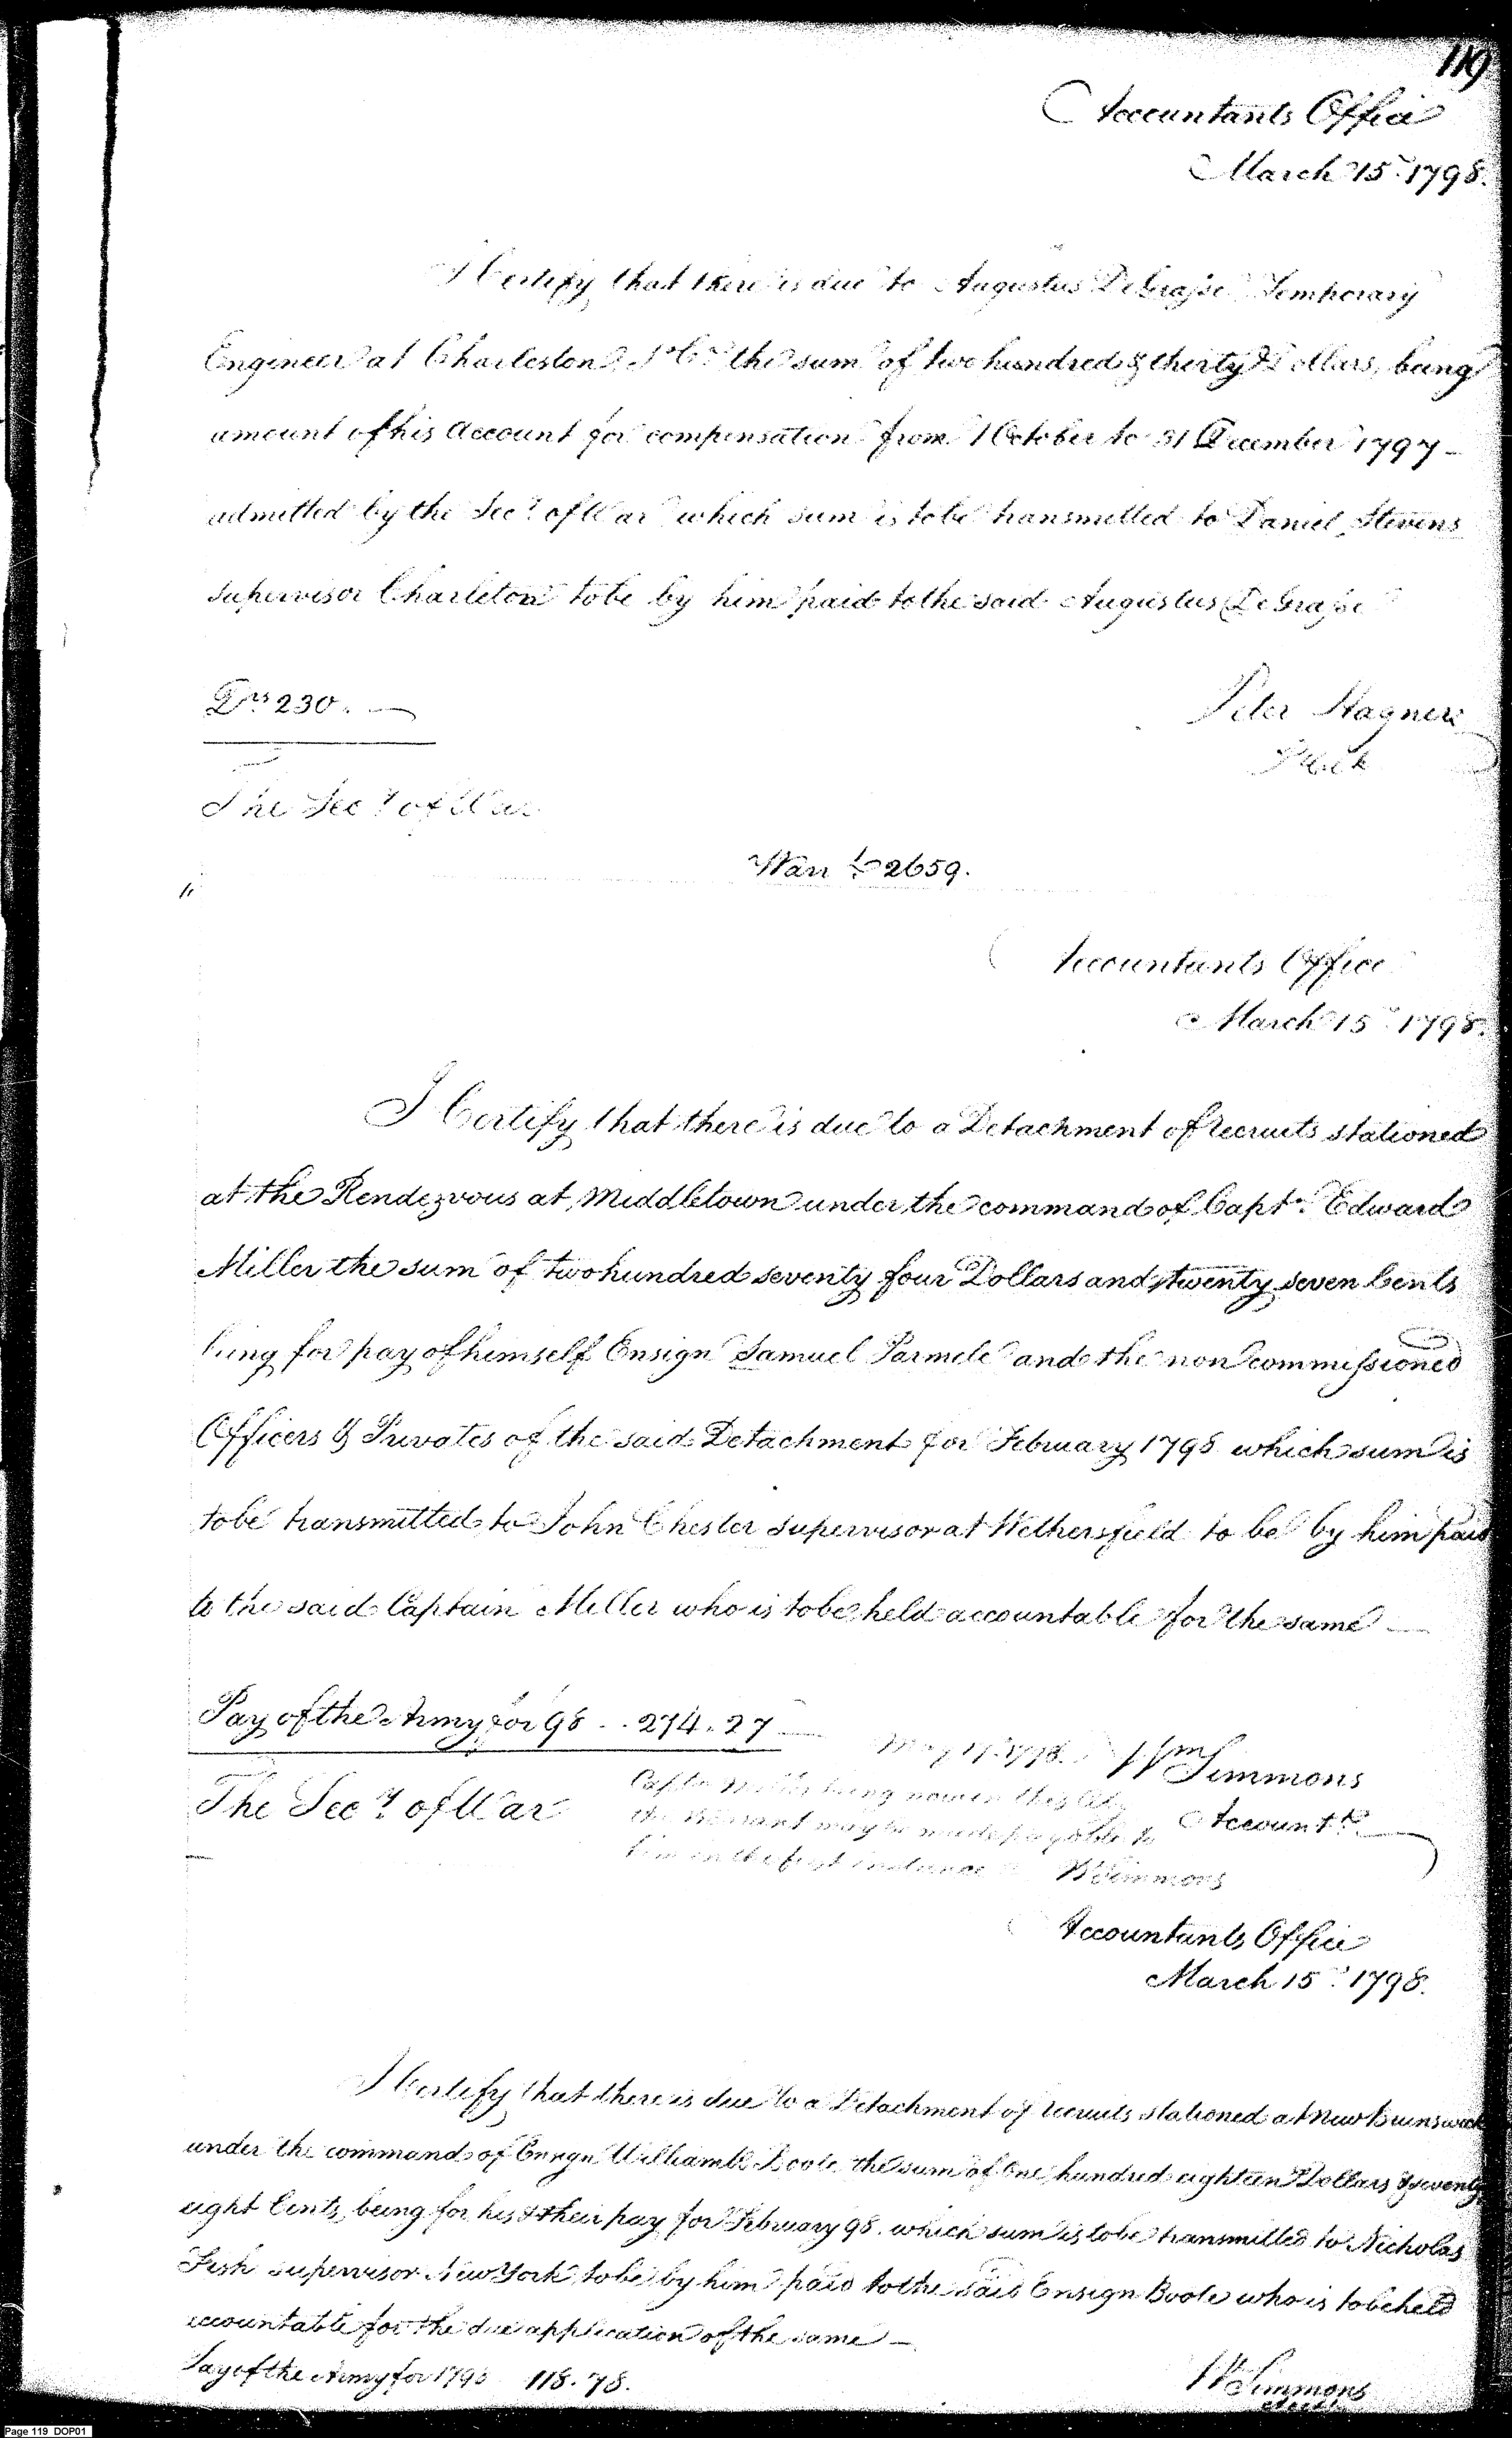 119
Accountants Office
March 15th 1798.
I Certify that there is due to Augustus DeGrasse Temporary
Engineer at Charleston So Ca the sum of two hundred & thirty Dollars, being
amount of his Account for compensation from 1 October to 31 December 1797 -
admitted by the Secy of War which sum is to be transmitted to Daniel Stevens
supervisor Charleton to be by him paid to the said Augustus DeGrasse
Drs 230. —
Peter Hagner
The Secy of War
Warrt 2659.
Accountants Office
March 15th 1798.
I Certify that there is due to a Detachment of recruits stationed
at the Rendezvous at Middletown under the command of Captn. Edward
Miller the sum of two hundred seventy four Dollars and twenty seven Cents
being for pay of himself Ensign Samuel Parmele and the non commissioned
Officers & Privates of the said Detachment for February 1798 which sum is
to be transmitted to John Chester supervisor at Wethersfield to be by him paid
to the said Captain Miller who is to be held accountable for the same —
Pay of the Army for 98 .. 274.27
May 17. 1798.
Wm Simmons
Captn Miller being now in this City
The Secy of War
Accountt
the Warrant may be made payable to
him in the first instance
W Simmons
Accountants Office
March 15th 1798.
I Certify that there is due to a Detachment of recruits stationed at New Brunswick
under the command of Ensign William C Boote the sum of One hundred eighteen Dollars & seventy
eight Cents, being for his & their pay for February 98. which sum is to be transmitted to Nicholas
Fish supervisor New York, to be by him paid to the said Ensign Boote who is to be held
accountable for the due application of the same —
Pay of the Army for 1798 118.78.
W Simmons
Acctt
Page 119 DOP01